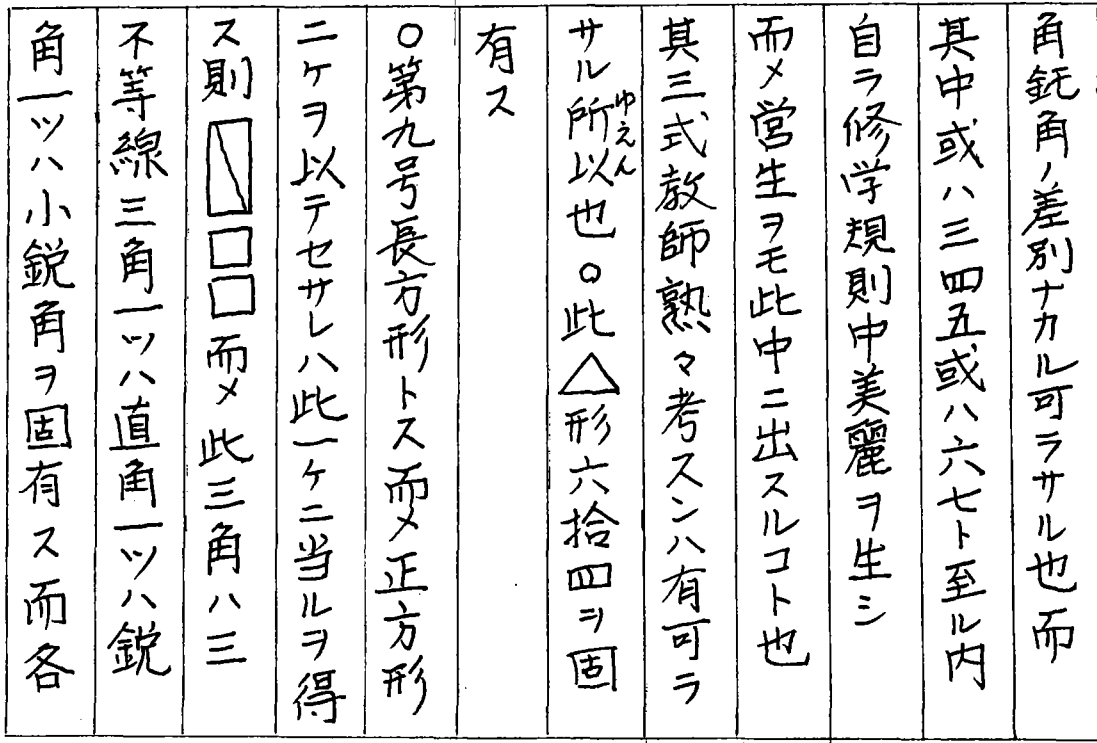 角鈍角ノ差別ナカル可ラサル也而
其中或ハ三四五或ハ六七ト至ル内
自ラ修学規則中美麗ヲ生シ
而〆営生ヲモ此中ニ出スルコト也
其三式教師熟々考スンハ有可ラ
サル所以也○此△形六拾四ヲ固
ゆえん
有ス
○第九号長方形トス而〆正方形
ニケヲ以テセサレハ此一ケニ当ルヲ得
ス則□□而〆此三角ハ三
不等線三角一ツハ直角一ツハ鋭
角一ツハ小鋭角ヲ固有ス而各